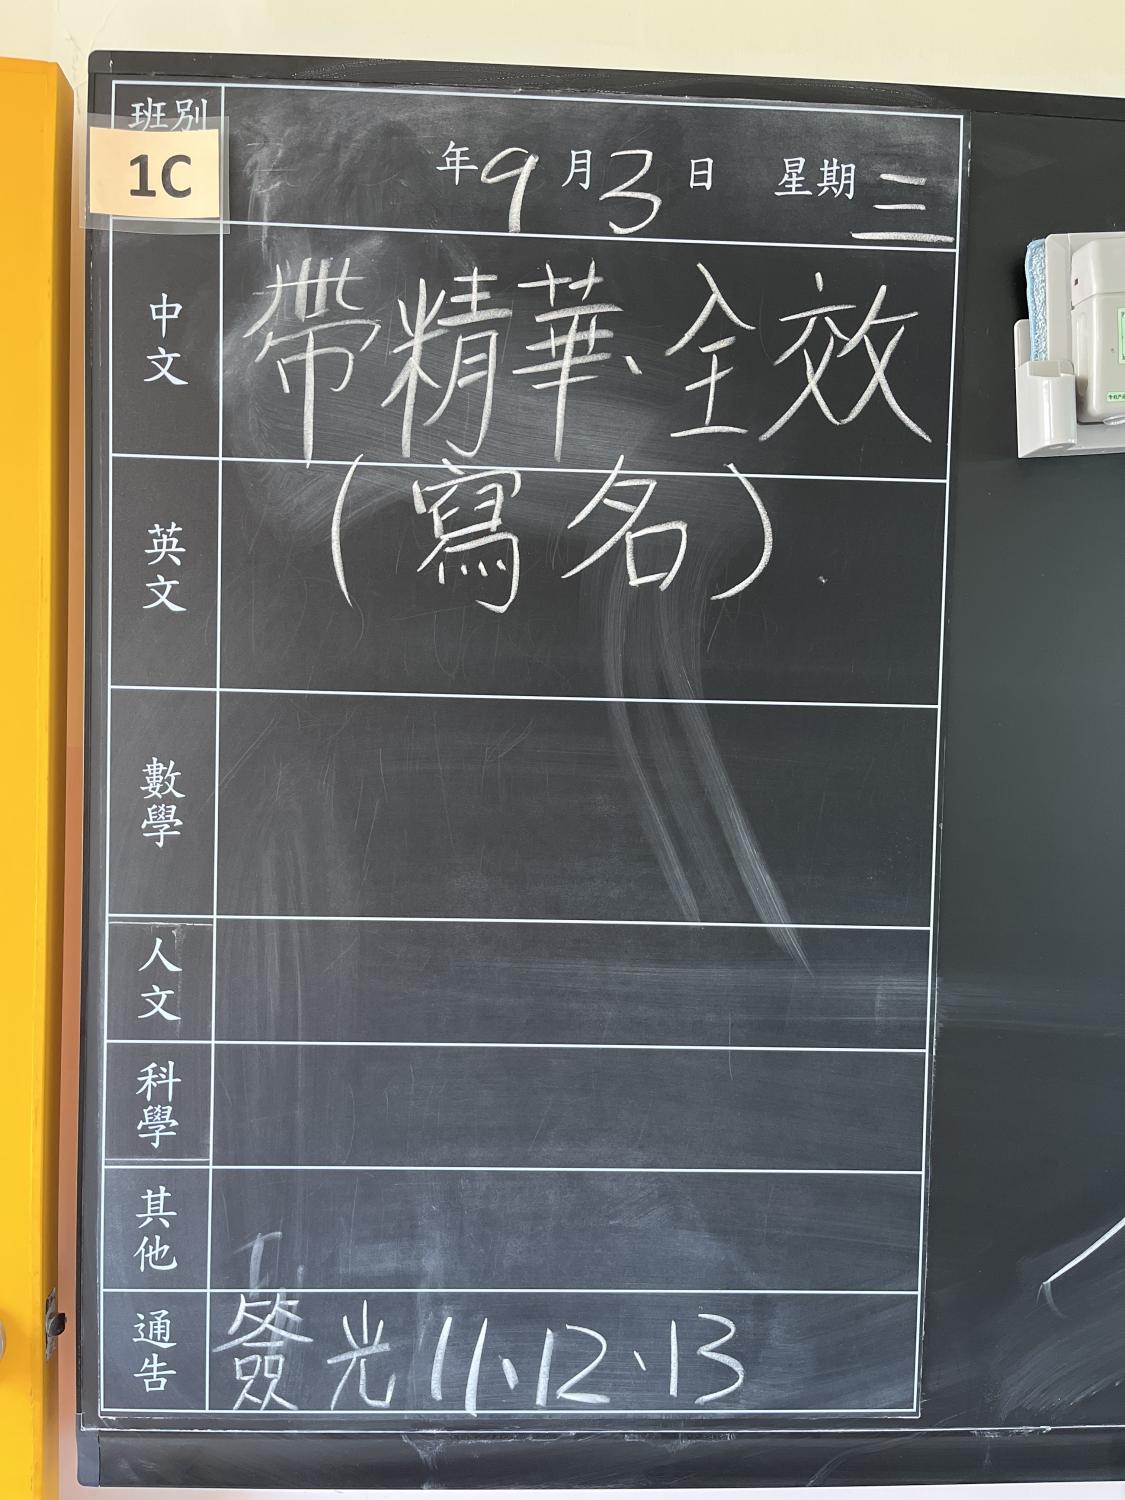 班別
1C
年9月3日 星期三
中文
帶精華、全效
英文
(寫名)
數學
人文
科學
其他
通告
簽光11、12、13